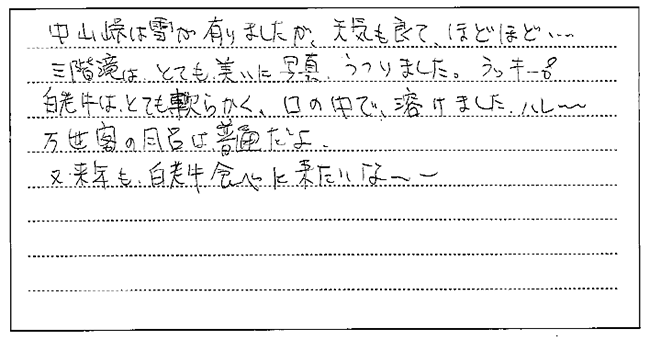 中山峠は雪が有りましたが、天気も良て、ほどほど、、、
三階滝は、とても、美いに写真、うつりました。ラッキー。
白老牛は、とても軟らかく、口の中で、溶けました。ハレ〜〜
万世閣の風呂は普通だよ、
又、来年も、白老牛食べに来たいな〜ー